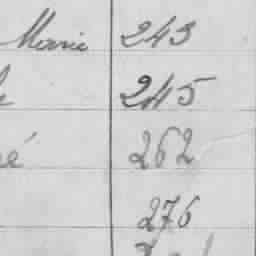 Marie 243
245
é 262
276